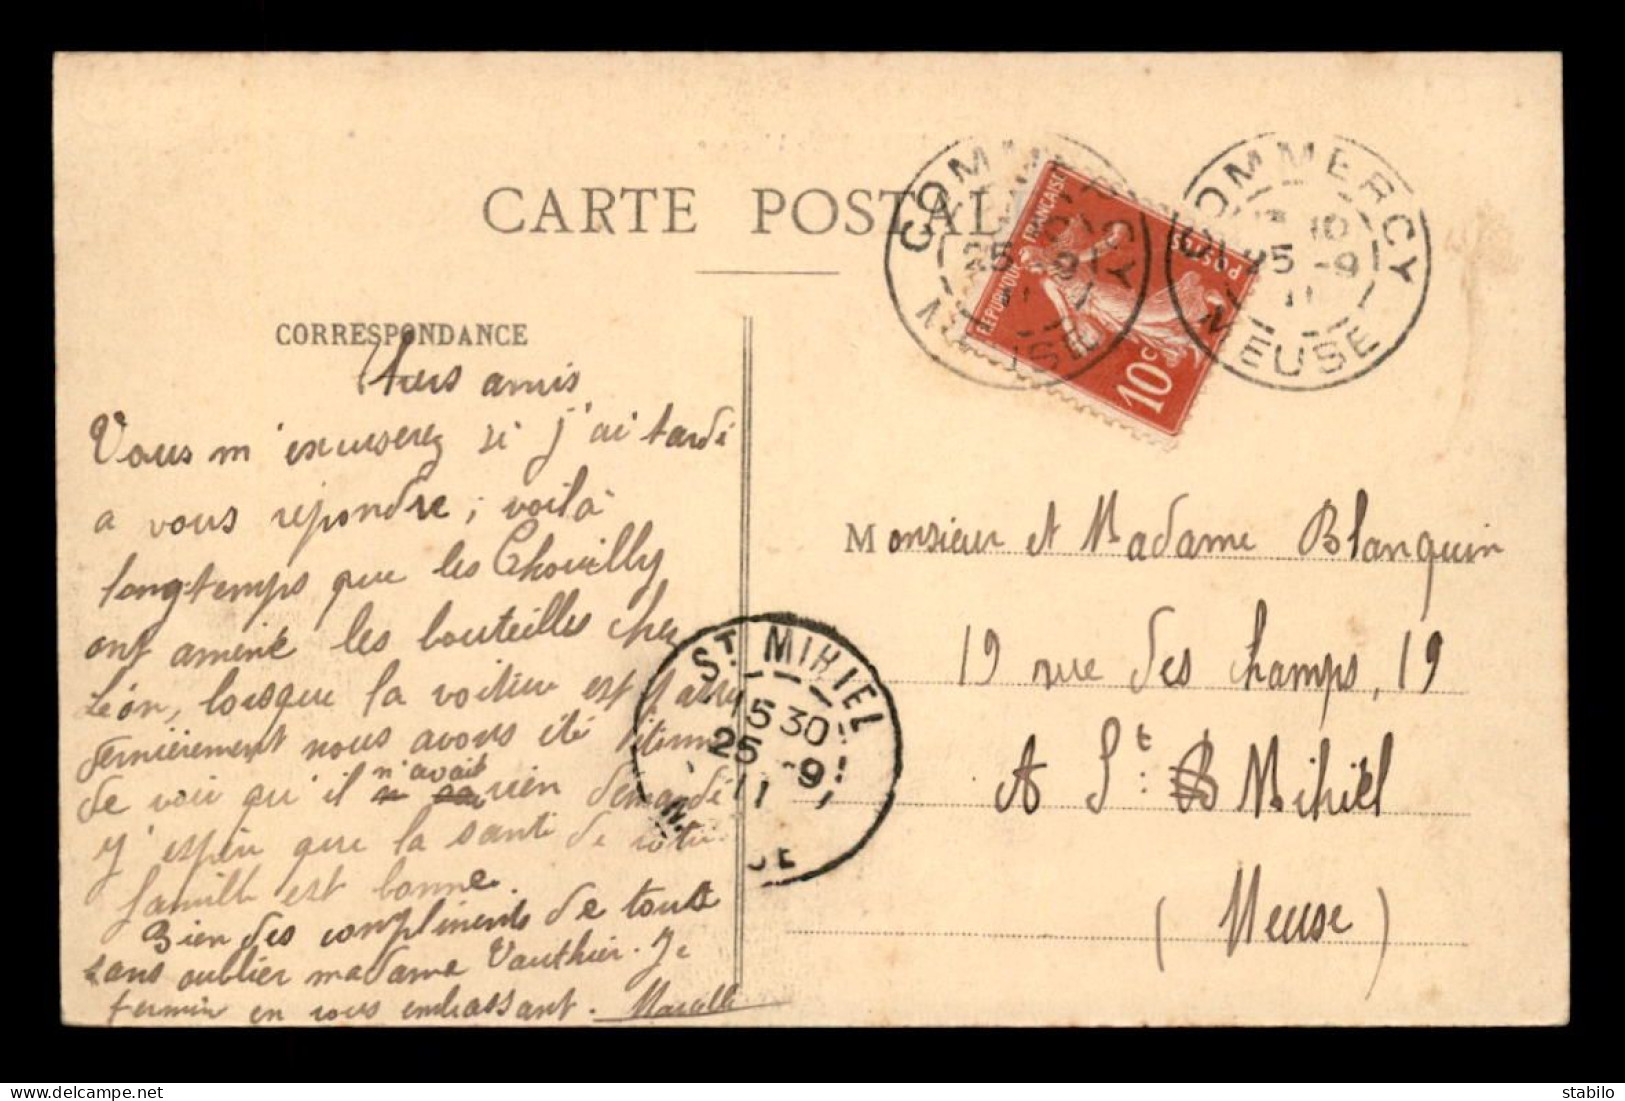 CARTE POSTAL
CORRESPONDANCE
Chers amis
Vous m'excuserez si j'ai tardé
a vous répondre, voilà
longtemps que les Chouilly
ont amené les bouteilles chez
Léon, lorsque la voiture est passé
dernièrement nous avons été étonné
de voir qu'il n'avait rien demandé
J'espère que la santé de votre
famille est bonne.
Bien des compliments de toute
sans oublier madame Vauthier. Je
termine en vous embrassant.
RÉPUBLIQUE FRANÇAISE
POSTES
10c
COMMERCY
25 -9
11
MEUSE
COMMERCY
10
25 -9
11
MEUSE
Monsieur et Madame Blanquin
19 rue des champs, 19
A St: Mihiel
(Meuse)
ST MIHIEL
15 30
25 -9
11
stabilo